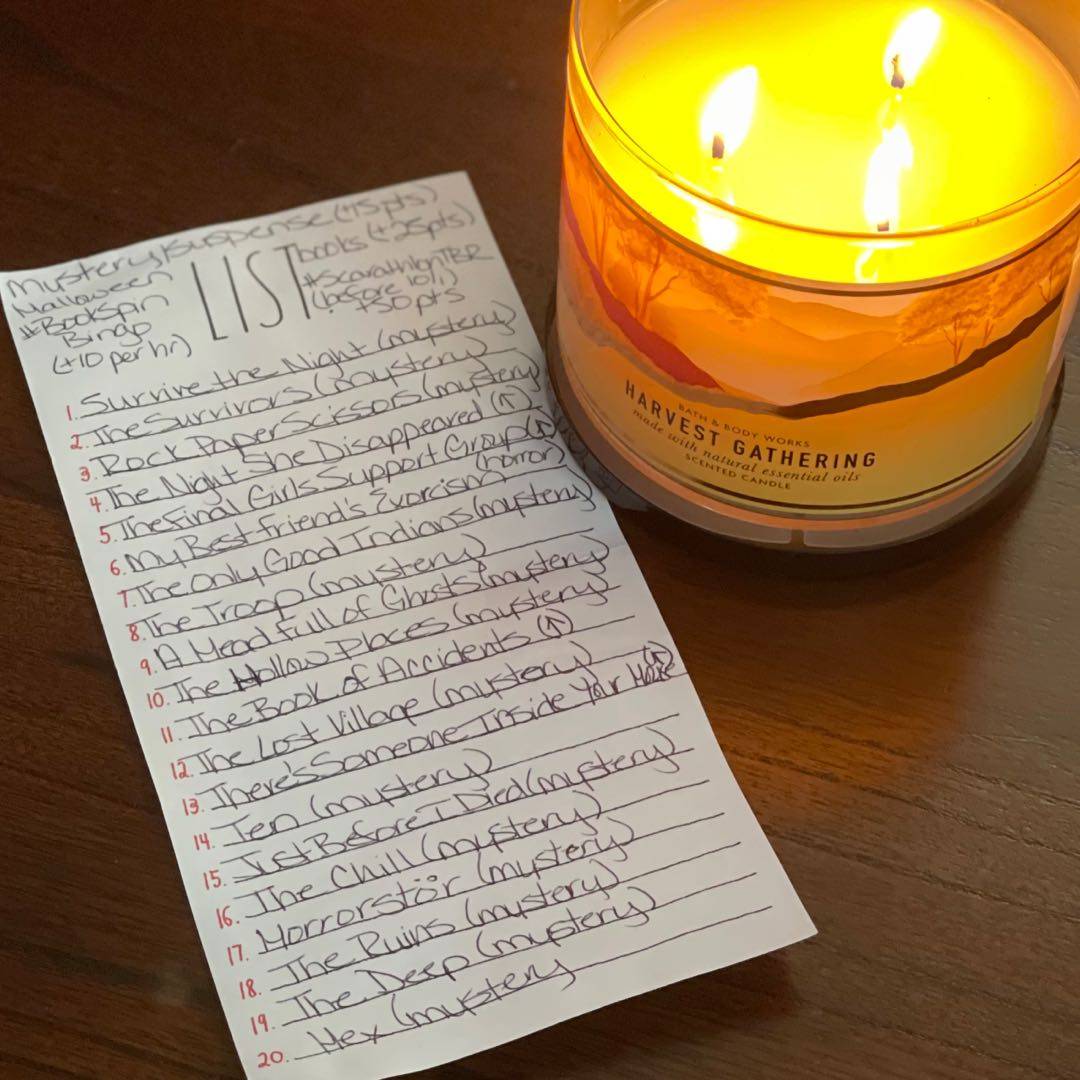 Mystery/suspense (+15pts)
Halloween books (+25pts)
#BookSpin Bingo (+10 per hr)
LIST
#ScarathlonTBR
(before 10/1)
+50pts
1. Survive the Night (mystery)
2. The Survivors (mystery)
3. Rock Paper Scissors (mystery)
4. The Night She Disappeared (↑)
5. The Final Girls Support Group (↑)
6. My Best Friend's Exorcism (horror)
7. The Only Good Indians (mystery)
8. The Troop (mystery)
9. A Head Full of Ghosts (mystery)
10. The Hollow Places (mystery)
11. The Book of Accidents (↑)
12. The Lost Village (mystery)
13. There's Someone Inside Your House (↑)
14. Ten (mystery)
15. Just Before I Died (mystery)
16. The Chill (mystery)
17. Horrorstör (mystery)
18. The Ruins (mystery)
19. The Deep (mystery)
20. Hex (mystery)
BATH & BODY WORKS
HARVEST GATHERING
made with natural essential oils
SCENTED CANDLE